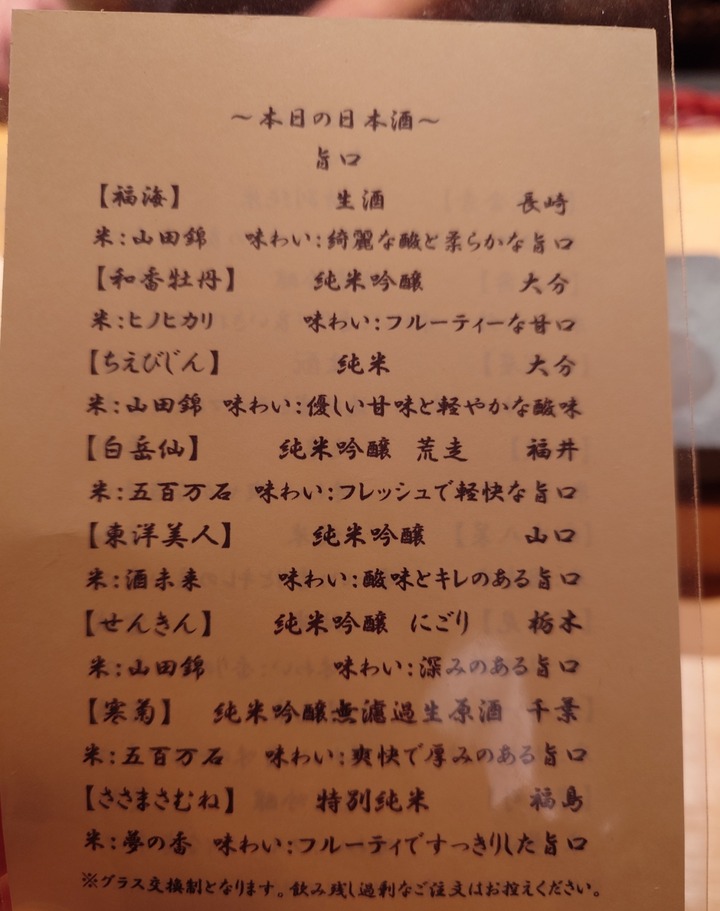 ～本日の日本酒～
旨口
【福海】 生酒 長崎
米:山田錦 味わい:綺麗な酸と柔らかな旨口
【和香牡丹】 純米吟醸 大分
米:ヒノヒカリ 味わい:フルーティーな甘口
【ちえびじん】 純米 大分
米:山田錦 味わい:優しい甘味と軽やかな酸味
【白岳仙】 純米吟醸 荒走 福井
米:五百万石 味わい:フレッシュで軽快な旨口
【東洋美人】 純米吟醸 山口
米:酒未来 味わい:酸味とキレのある旨口
【せんきん】 純米吟醸 にごり 栃木
米:山田錦 味わい:深みのある旨口
【寒菊】 純米吟醸無濾過生原酒 千葉
米:五百万石 味わい:爽快で厚みのある旨口
【ささまさむね】 特別純米 福島
米:夢の香 味わい:フルーティですっきりした旨口
※グラス交換制となります。飲み残し過剰なご注文はお控えください。